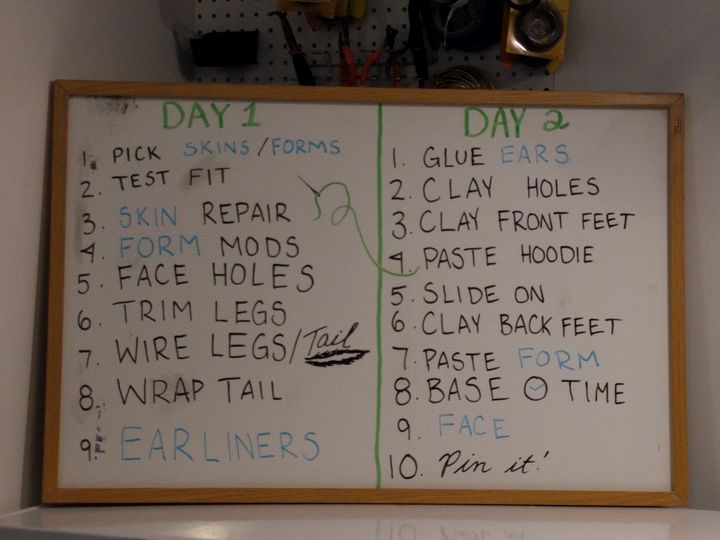 DAY 1
1. PICK SKINS/FORMS
2. TEST FIT
3. SKIN REPAIR
4. FORM MODS
5. FACE HOLES
6. TRIM LEGS
7. WIRE LEGS/Tail
8. WRAP TAIL
9. EARLINERS
DAY 2
1. GLUE EARS
2. CLAY HOLES
3. CLAY FRONT FEET
4. PASTE HOODIE
5. SLIDE ON
6. CLAY BACK FEET
7. PASTE FORM
8. BASE TIME
9. FACE
10. Pin it!